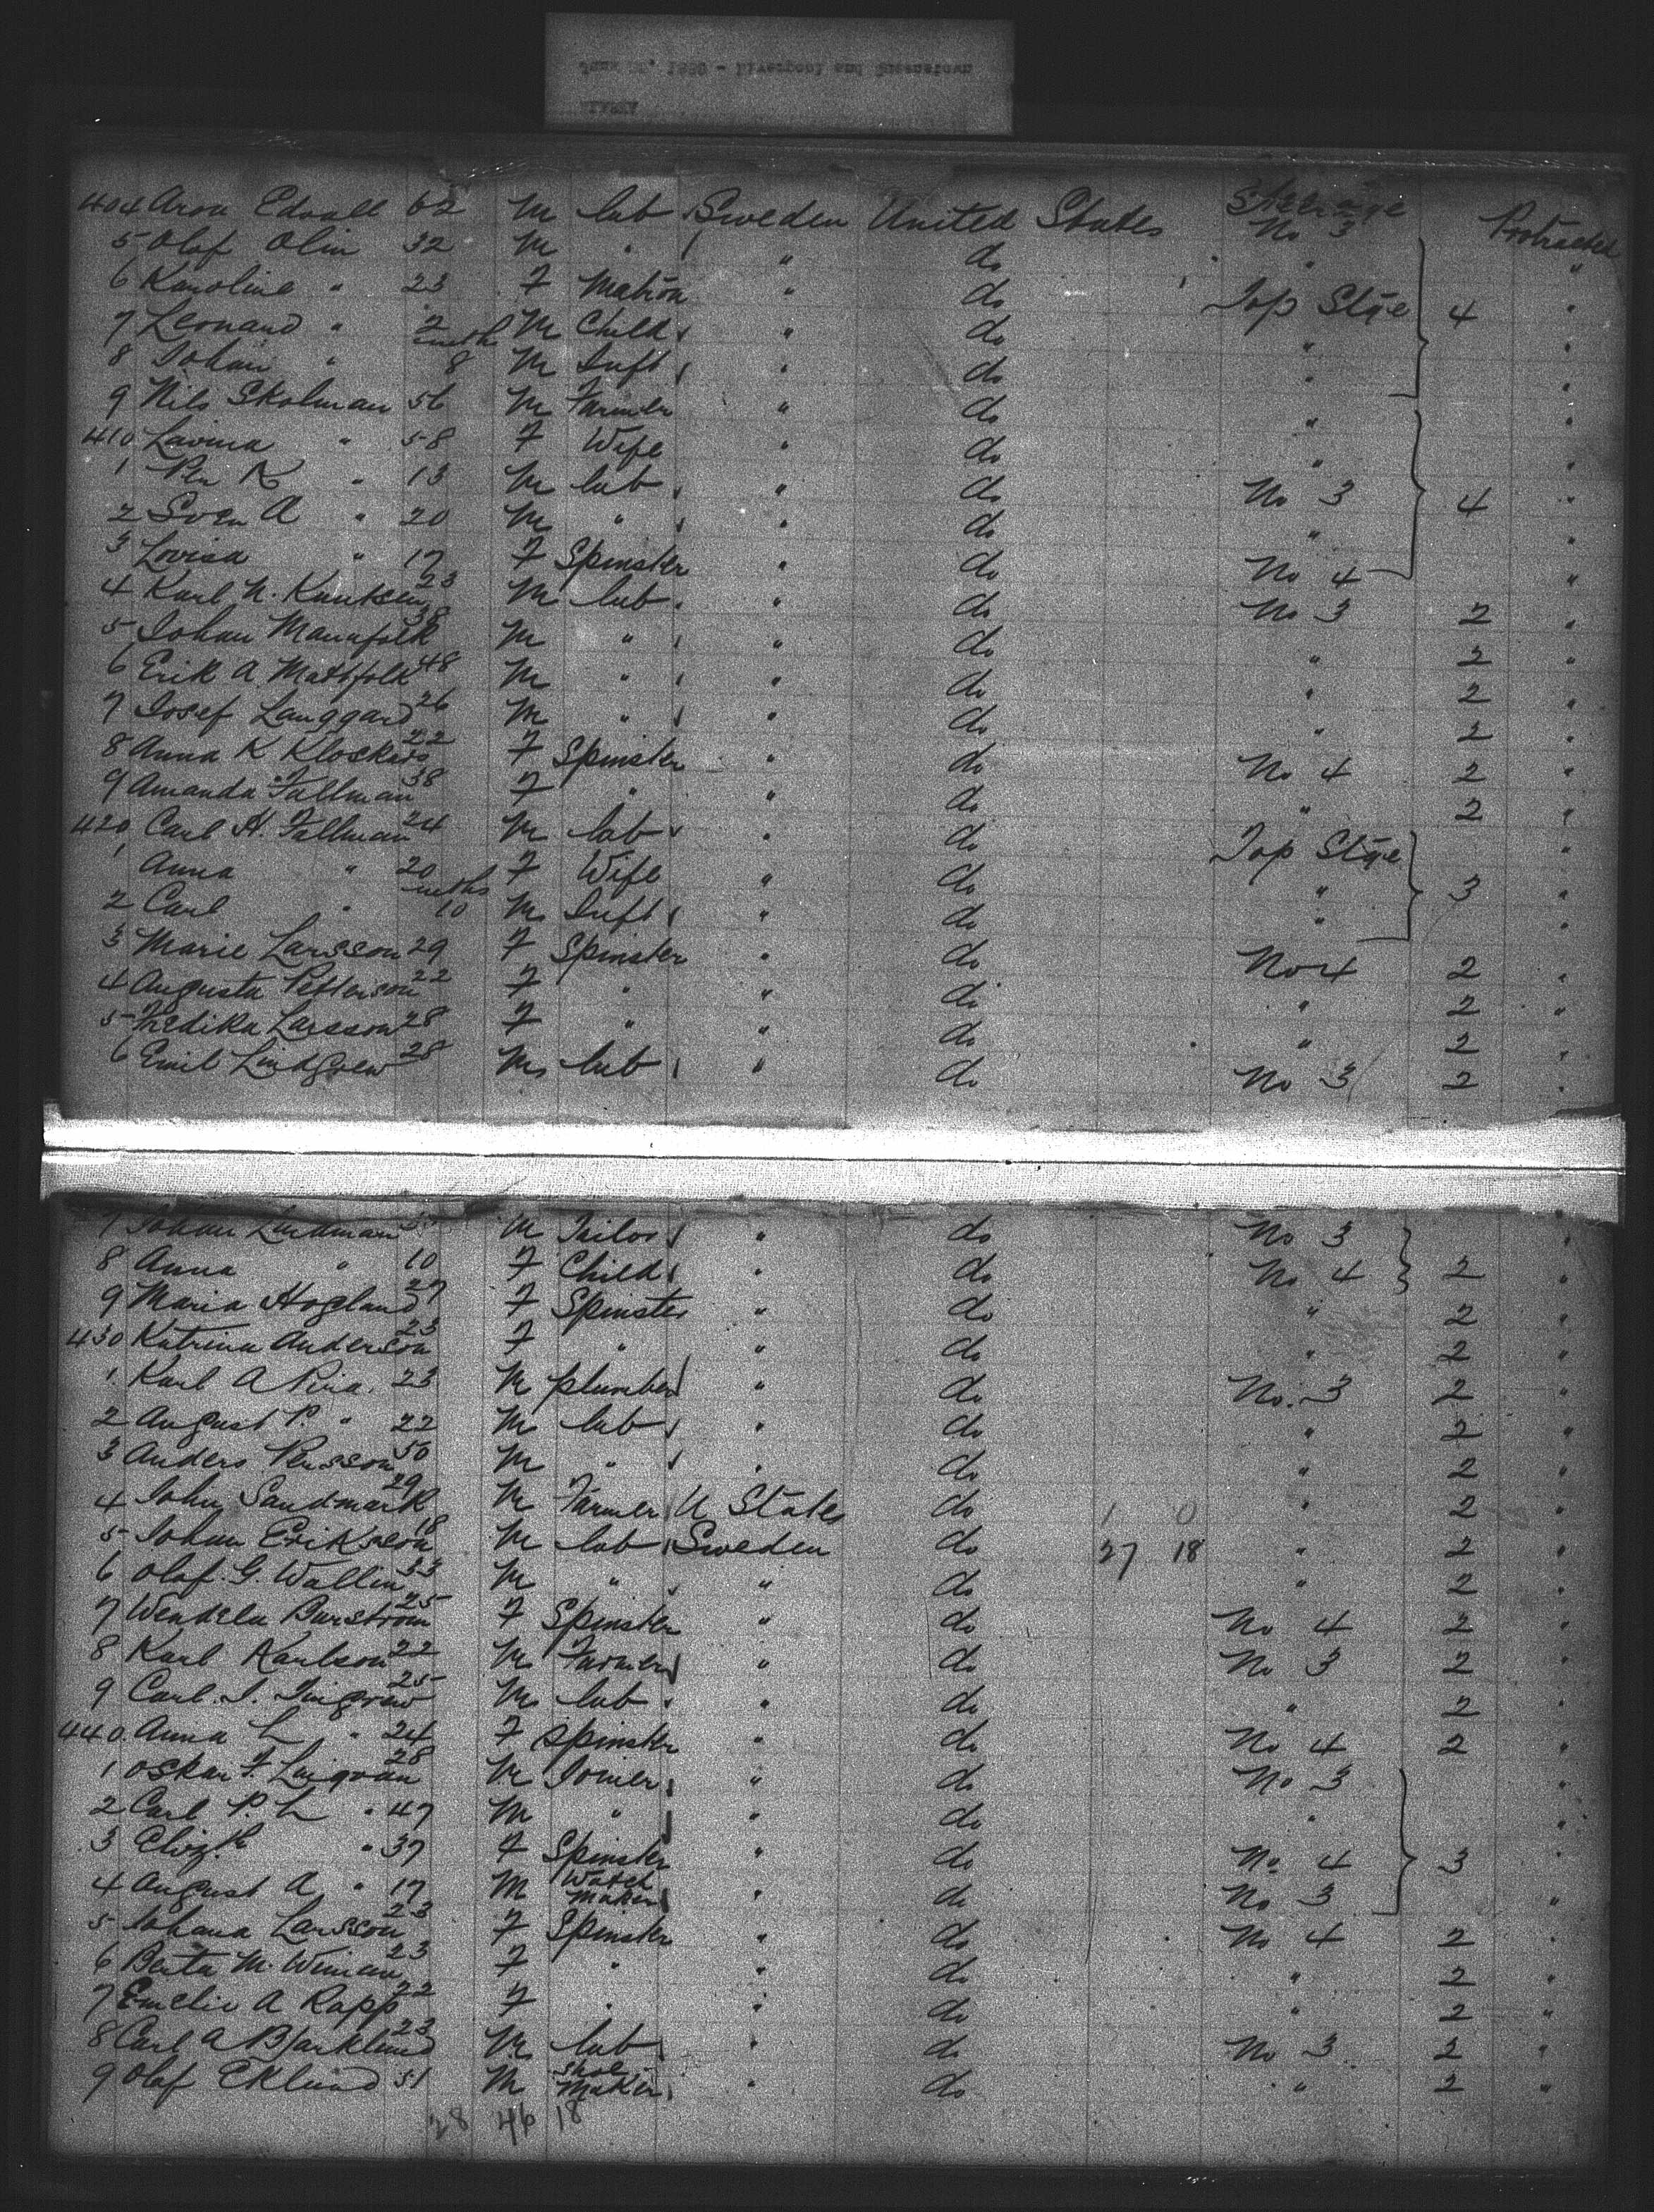 June , 1889 - Liverpool and Queenstown
ALASKA
404 Aron Edvall 62 M lab Sweden United States Steerage No 3 Protracted
5 Olof Olin 32 M " " do " "
6 Karoline " 23 F Matron " do Top Stge 4 "
7 Leonard " 2 M Child " do " "
8 Johan " mths 8 M Inft " do " "
9 Nils Skolman 56 M Farmer " do " "
410 Lavina " 58 F Wife " do " "
1 Per K " 13 M lab " do No 3 4 "
2 Sven A " 20 M " " do " "
3 Lovisa " 17 F Spinster " do No 4 "
4 Karl N. Knutsen 23 M lab " do No 3 2 "
5 Johan Manafolk 38 M " " do " 2 "
6 Erik A. Matsfolk 48 M " " do " 2 "
7 Josef Langgard 26 M " " do " 2 "
8 Anna K Klockars 22 F Spinster " do No 4 2 "
9 Amanda Fallman 38 F " " do " 2 "
420 Carl H. Fallman 24 M lab " do Top Stge "
1 Anna " 20 F Wife " do " 3 "
2 Carl " mths 10 M Inft " do " "
3 Marie Larsson 29 F Spinster " do No 4 2 "
4 Augusta Petterson 22 F " " do " 2 "
5 Fredika Larsson 28 F " " do " 2 "
6 Emil Lindgren 28 M lab " do No 3 2 "
7 Johan Lindman M Tailor " do No 3 "
8 Anna " 10 F Child " do No 4 2 "
9 Maria Hogland 27 F Spinster " do " 2 "
430 Katrina Anderson 23 F " " do " 2 "
1 Karl A 23 M plumber " do No. 3 2 "
2 August P. " 22 M lab " do " 2 "
3 Anders Persson 50 M " " do " 2 "
4 John Sandmark 29 M Farmer U States do 1 0 " 2 "
5 Johan Eriksson 18 M lab Sweden do 27 18 " 2 "
6 Olof. G. Wallin 33 M " " do " 2 "
7 Wendela Burstrom 25 F Spinster " do No 4 2 "
8 Karl Karlson 22 M Farmer " do No 3 2 "
9 Carl. J. 25 M lab " do " 2 "
440. Anna L " 24 F Spinster " do No 4 2 "
1 Oskar F. 28 M Joiner " do No 3 "
2 Carl P. L " 47 M " " do " "
3 Elizth " 37 F Spinster " do No 4 3 "
4 August A " 17 M Watch Maker " do No 3 "
5 Johana Larsson 23 F Spinster " do No 4 2 "
6 Berta M. Wiman 23 F " " do " 2 "
7 Emelie A Rapp 22 F " " do " 2 "
8 Carl A Bjorklund 23 M lab " do No 3 2 "
9 Olof Eklund 51 M Shoe Maker " do " 2 "
28 46 18